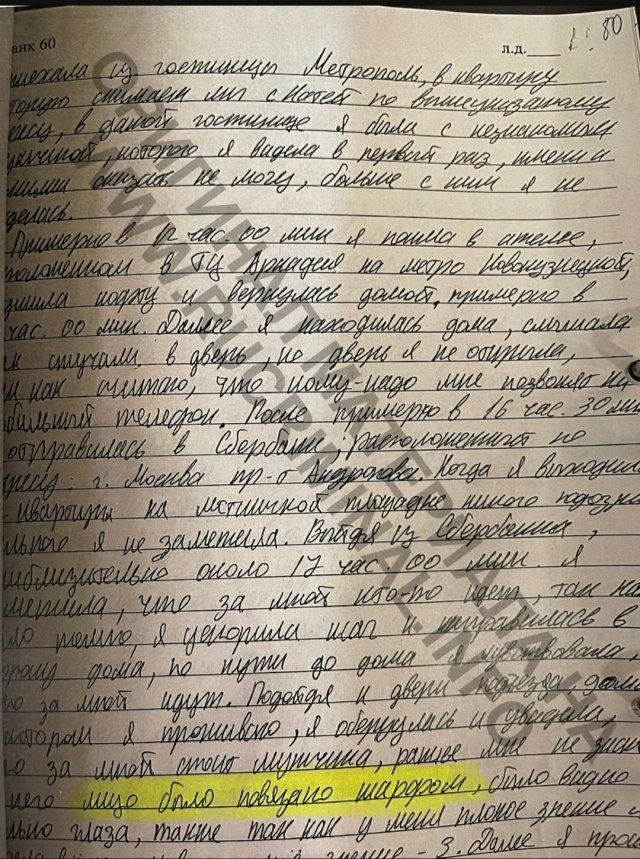 анк 60 л.д. 80
риехала из гостиницы Метрополь, в квартиру
торую снимаем мы с Катей по вышеуказанному
ресу, в данной гостинице я была с незнакомым
мужчиной, которого я видела в первый раз, имени и
сказать не могу, больше с ним я не
делась.
Примерно в 12 час. 00 мин я пошла в ателье,
положенном в ТЦ Аркадия на метро Новокузнецкой,
и вернулась домой, примерно в
час. 00 мин. Далее я находилась дома, слышала
к стучали в дверь, но дверь я не открыла,
к как считаю, что кому-надо мне позвонят на
бильный телефон. После примерно в 16 час. 30 мин
отправилась в Сбербанк, расположенный по
ресу: г. Москва пр-т Андропова. Когда я выходила
квартиры на лестничной площадке никого подозри
льного я не заметила. Выйдя из Сбербанка,
иблизительно около 17 час. 00 мин. я
метила, что за мной кто-то идет, так как
ло темно, я ускорила шаг и направилась в
орону дома, по пути до дома я чувствовала,
о за мной идут. Подойдя к двери подъезда дома
котором я проживаю, я обернулась и увидела,
о за мной стоит мужчина, ранее мне не знак
него лицо было повязано шарфом, было видно
лько глаза, также так как у меня плохое зрение
зрение - 3. Далее я прои
ОРИГИНАЛ МАТЕРИАЛА НА
WWW.RUCRIMINAL.INFO